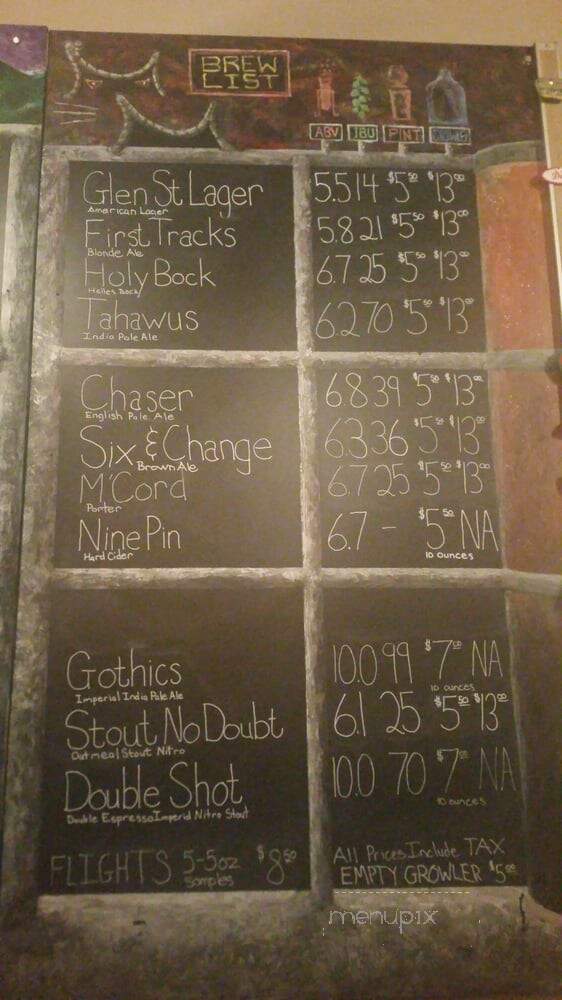 BREW LIST
ABV IBU PINT
Glen St Lager 5.5 14 $5.50 $13.00
American Lager
First Tracks 5.8 21 $5.50 $13.00
Blonde Ale
Holy Bock 6.7 25 $5.50 $13.00
Helles Bock
Tahawus 6.2 70 $5.50 $13.00
India Pale Ale
Chaser 6.8 39 $5.50 $13.00
English Pale Ale
Six & Change 6.3 36 $5.50 $13.00
Brown Ale
M'Cord 6.7 25 $5.50 $13.00
Porter
Nine Pin 6.7 - $5.50 NA
Hard Cider 10 ounces
Gothics 10.0 99 $7.00 NA
Imperial India Pale Ale 10 ounces
Stout No Doubt 6.1 25 $5.50 $13.00
Oatmeal Stout Nitro
Double Shot 10.0 70 $7.00 NA
Double Espresso Imperial Nitro Stout 10 ounces
FLIGHTS 5-5oz samples $8.50
All Prices Include TAX
EMPTY GROWLER $5.00
menupix